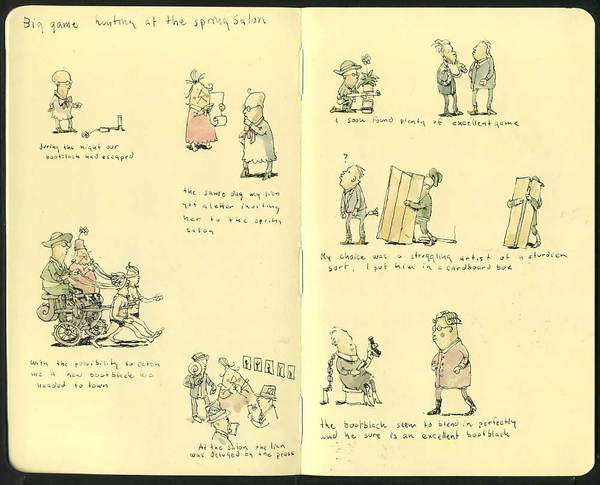 Big game hunting at the spring Salon
during the night our
bootblack had escaped
the same day my lion
got a letter inviting
her to the spring
salon
with the possibility to catch
me a new bootblack we
headed to town
At the salon the lion
was deluged by the press
I soon found plenty of excellent game
?
My choice was a struggling artist of a sturdier
sort, I put him in a cardboard box
the bootblack seem to blend in perfectly
and he sure is an excellent bootblack